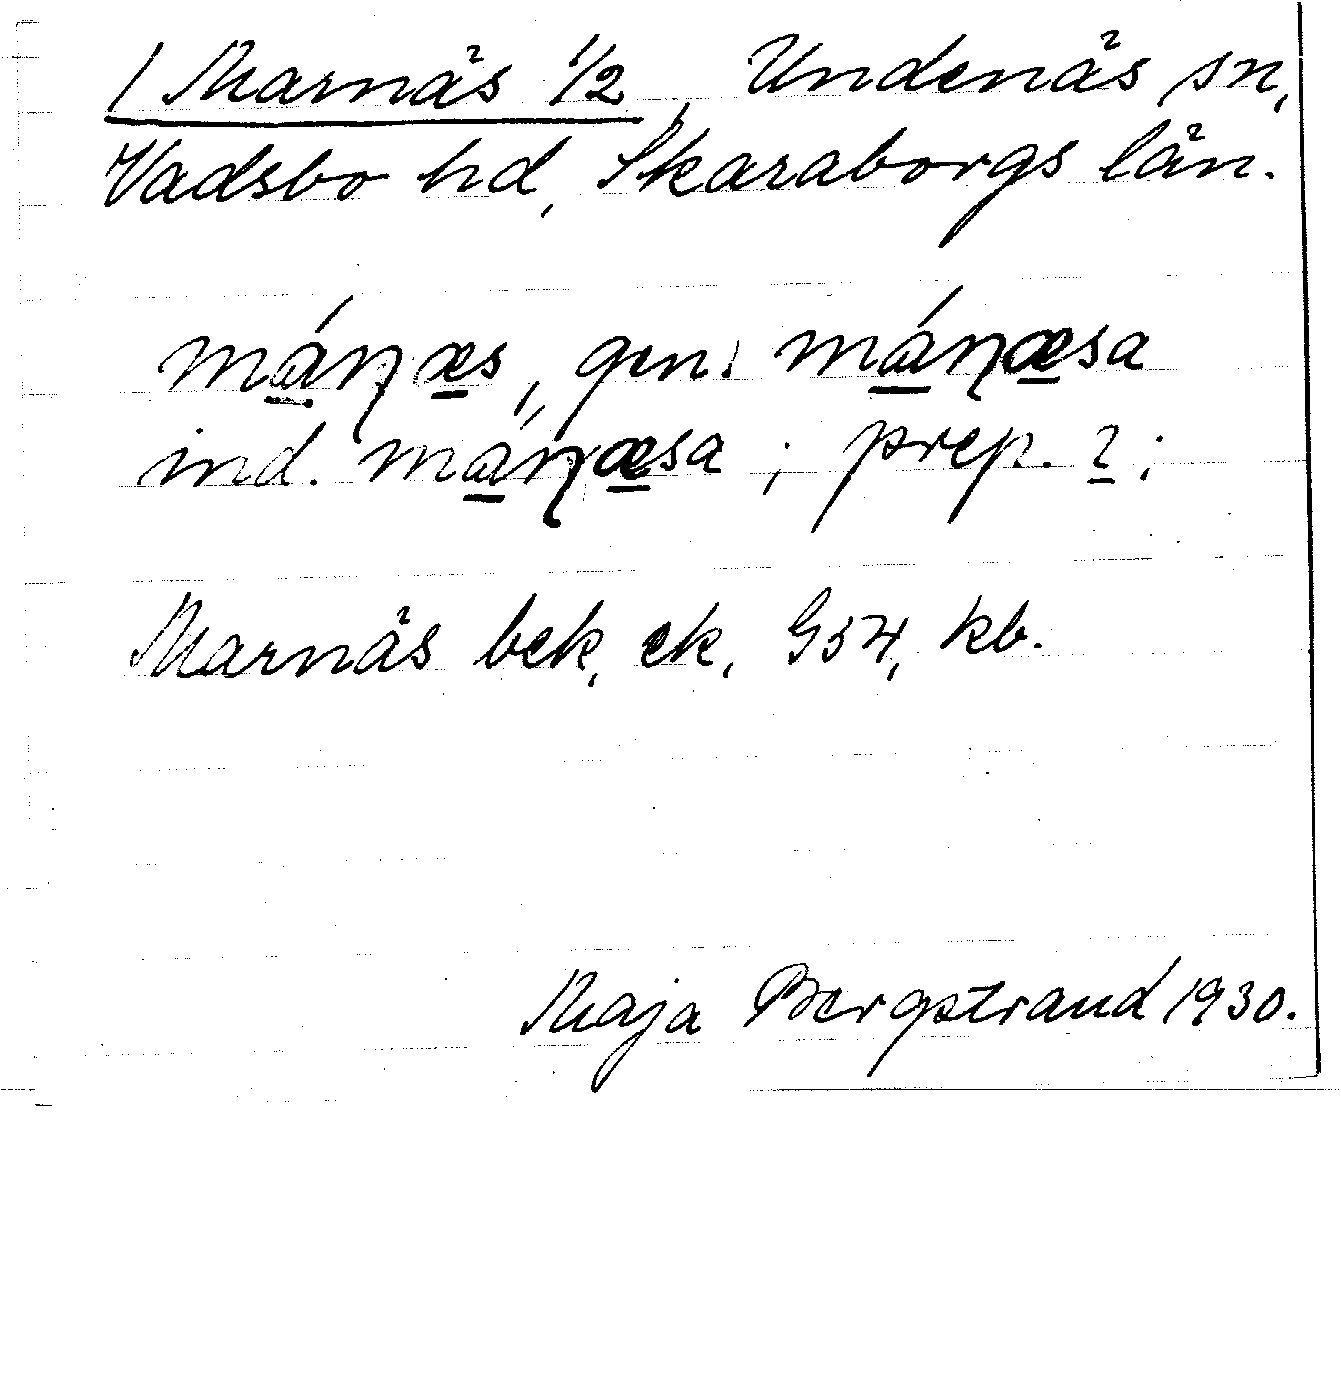 1 Marnäs 1/2, Undenäs sn,
Vadsbo hd, Skaraborgs län.
máɳæs, gen. máɳæsa
ind. máɳæsa ; prep. ? ;
Marnäs bek, ek, G54, kb.
Maja Bergstrand 1930.